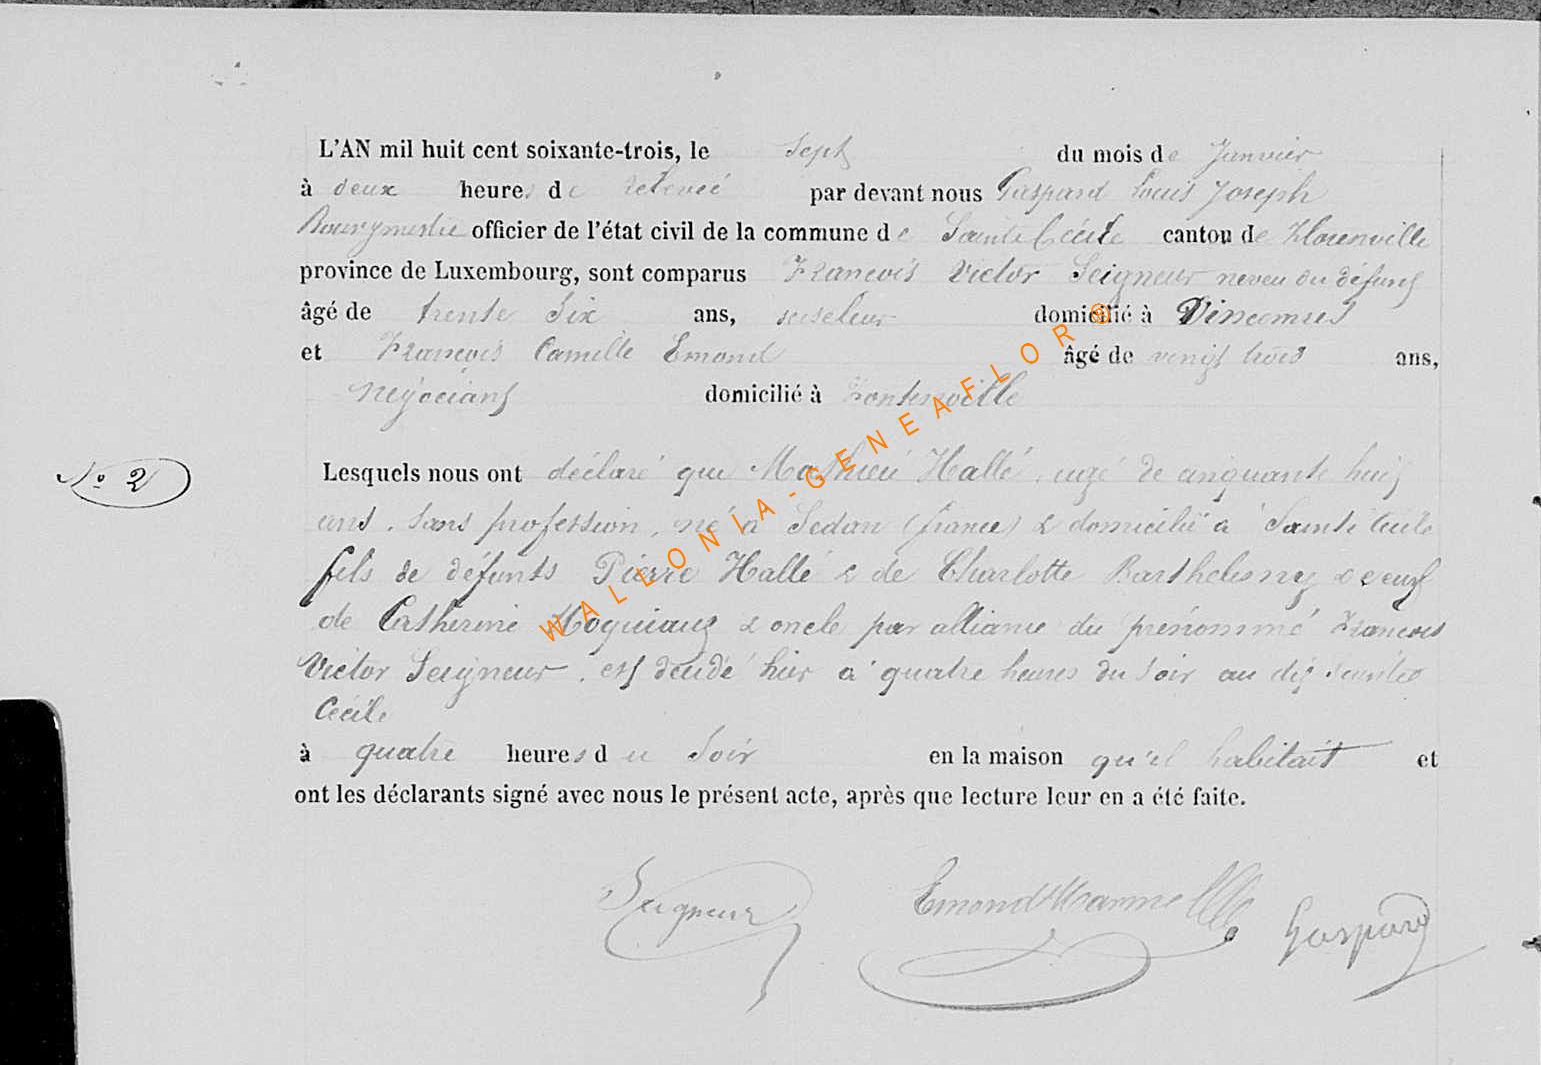 L'AN mil huit cent soixante-trois, le sept du mois de Janvier
à deux heures de relevée par devant nous Gaspard Louis Joseph
Bourgmestre officier de l'état civil de la commune de Sainte Cécile canton de Florenville
province de Luxembourg, sont comparus François Victor Seigneur neveu du défunt
âgé de trente six ans, domicilié à
et François Camille Emond âgé de vingt trois ans,
négociant domicilié à Fontenoille
Lesquels nous ont déclaré que Mathieu Hallé, agé de cinquante huit
ans, sans profession, né à Sedan (france) & domicilié à Sainte Cécile
fils de défunts Pierre Hallé & de Charlotte Barthelemy veuf
de Catherine & oncle par alliance du prénommé François
Victor Seigneur, est décédé hier à quatre heures du soir au dit Sainte
Cécile
à quatre heures du soir en la maison qu'il habitait et
ont les déclarants signé avec nous le présent acte, après que lecture leur en a été faite.
No 2
Seigneur Emond Gaspard
WALLONIA-GENEAFLOR ®